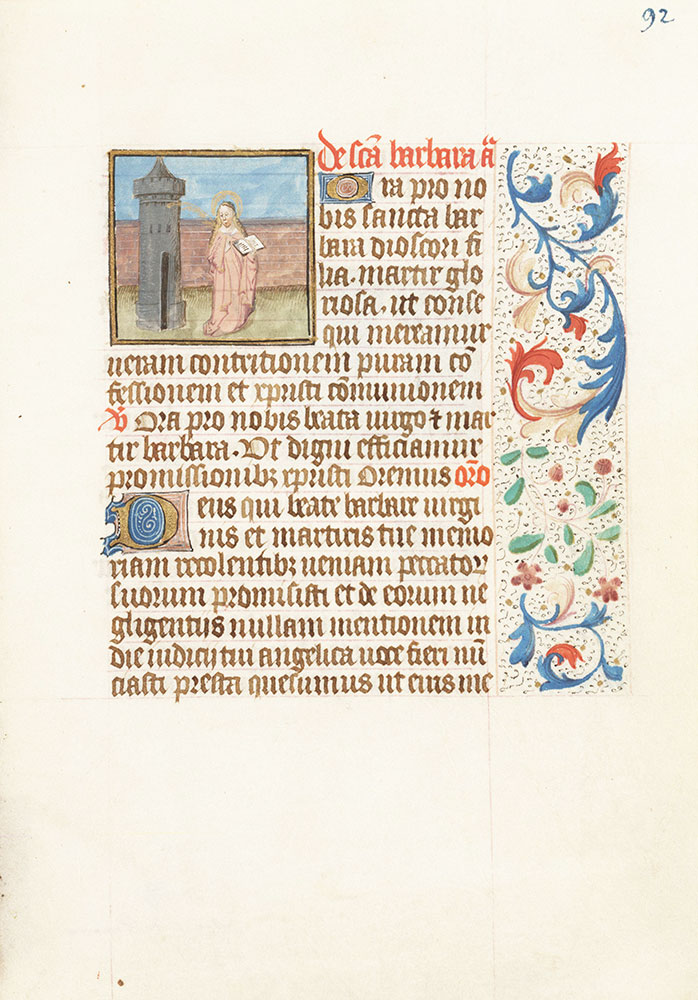 92
De scã barbara ã
Ora pro no
bis sancta bar
bara dioscori fi
lia. martir glo
riosa, ut conse
qui mereamur
ueram contritionem puram cõ
fessionem et xpristi cõmunionem
V Ora pro nobis beata uirgo ⁊ mar
tir barbara. Vt digni efficiamur
promissionibꝫ xpristi Oremus orõ
Deus qui beate barbare uirgi
nis et martiris tue memo
riam recolentibꝫ ueniam peccator
suorum promisisti et de eorum ne
gligentijs nullam mentionem in
die iudicij tui angelica uoce fieri nũ
ciasti presta quesumus ut eius me